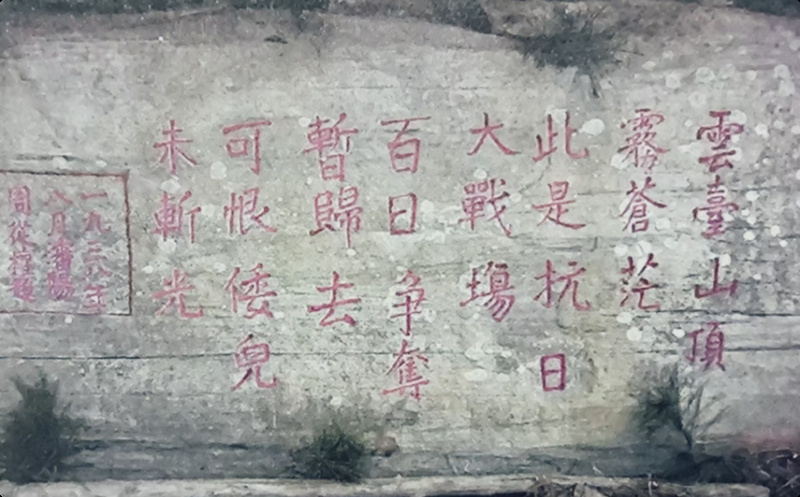 雲臺山頂
霧蒼茫
此是抗日
大戰場
百日争奪
暫歸去
可恨倭兒
未斬光
一九三八年
八月潘陽
周從控題